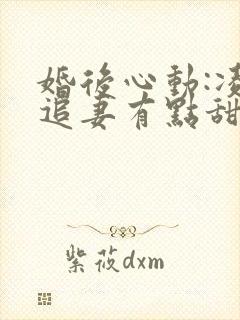 婚後心動:凌
追妻有點甜
紫莜dxm